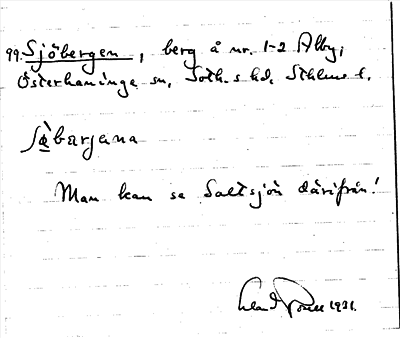 99. Sjöbergen, berg å nr. 1-2 Alby,
Österhaninge sn, Soth.s hd, Sthlms l.
Man kan se Saltsjön därifrån!
1931.